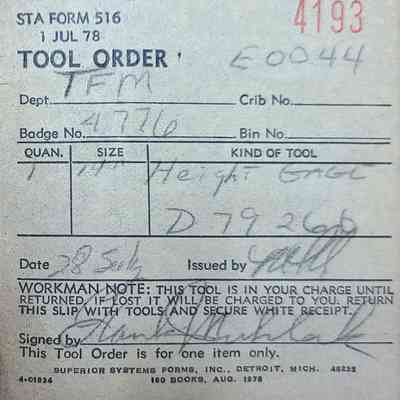 STA FORM 516
4193
1 JUL 78
TOOL ORDER
E0044
TFM
Dept. Crib No.
Badge No. 4776 Bin No.
QUAN. SIZE KIND OF TOOL
1 Height GAGE
D 79266
Date 28 Issued by
WORKMAN NOTE: THIS TOOL IS IN YOUR CHARGE UNTIL
RETURNED, IF LOST IT WILL BE CHARGED TO YOU. RETURN
THIS SLIP WITH TOOLS AND SECURE WHITE RECEIPT.
Signed by
This Tool Order is for one item only.
SUPERIOR SYSTEMS FORMS, INC., DETROIT, MICH. 48235
4-01834 160 BOOKS, AUG. 1978